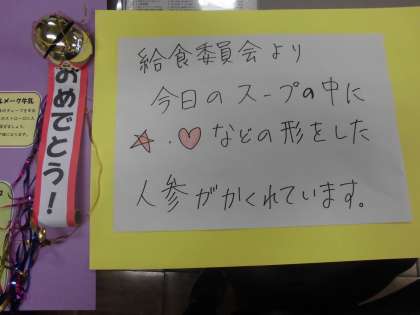 給食委員会より
今日のスープの中に
☆・♡などの形をした
人参がかくれています。
おめでとう！
ルメーク牛乳